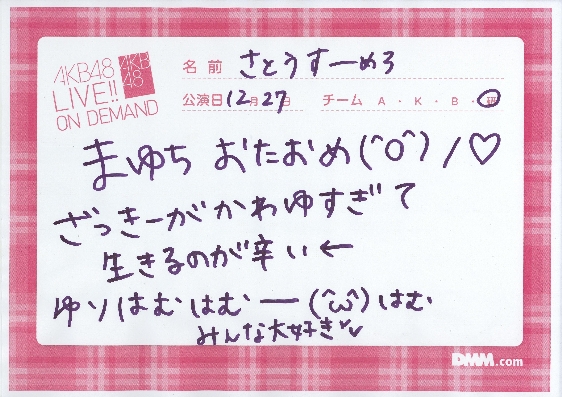 AKB48
LIVE!!
ON DEMAND
AKB
48
名前 さとうすーめろ
公演日 12月27日 チーム A・K・B・研
まゆち おたおめ(^O^)/♡
ざっきーがかわゆすぎて
生きるのが辛い←
ゆりはむはむー(^ω^)はむ
みんな大好き♥♥
DMM.com